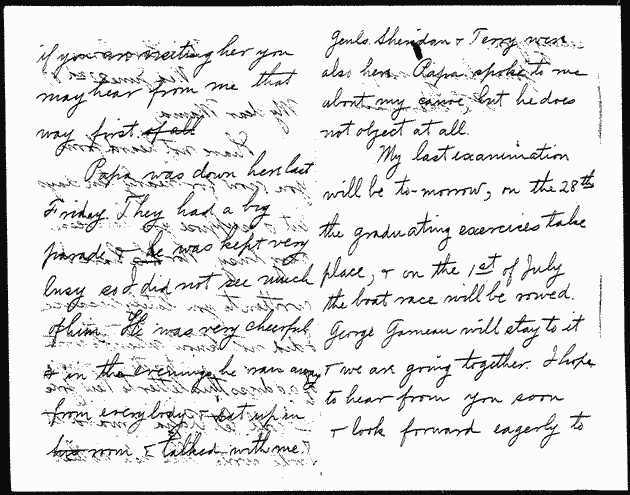 if you are visiting her you
may hear from me that
way first of all
Papa was down here last
Friday. They had a big
parade, & he was kept very
busy so I did not see much
of him. He was very cheerful
& in the evening he ran away
from everybody & sat up in
his room & talked with me.
Genls. Sheridan & Terry were
also here. Papa spoke to me
about my canoe, but he does
not object at all.
My last examination
will be to-morrow, on the 28th
the graduating exercises take
place, & on the 1st of July
the boat race will be rowed.
George Garneau will stay to it
& we are going together. I hope
to hear from you soon
& look forward eagerly to